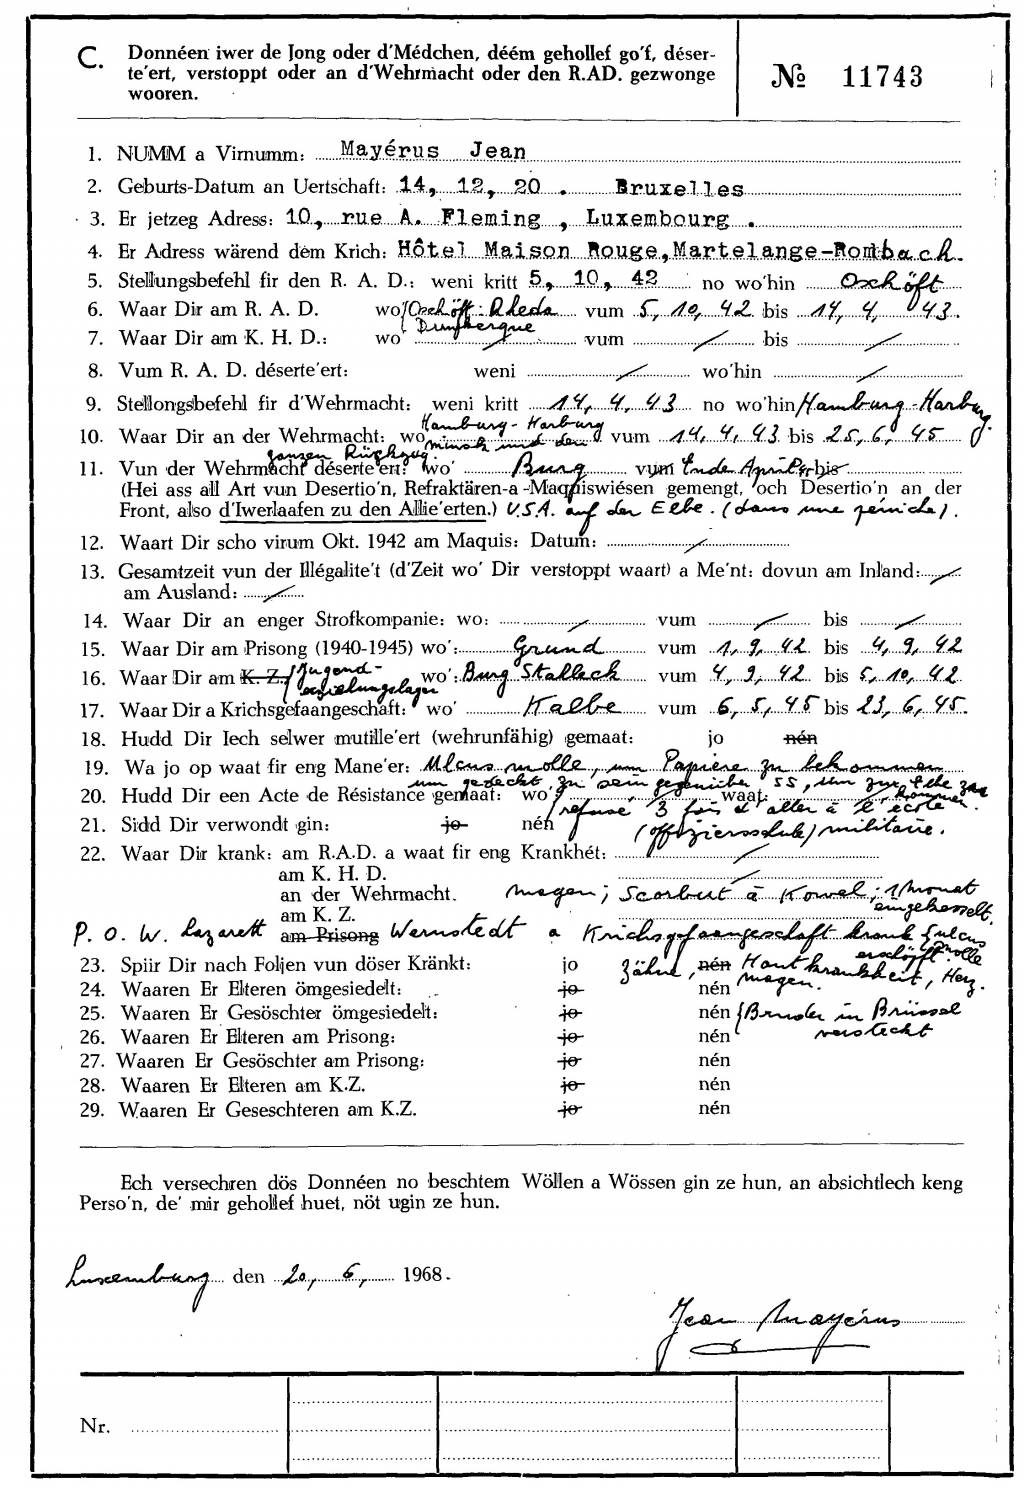 C. Donnéen iwer de Jong oder d'Médchen, déém gehollef go'f, déser-
te'ert, verstoppt oder an d'Wehrmacht oder den R.AD. gezwonge
wooren.
№ 11743
1. NUMM a Virnumm: Mayérus Jean
2. Geburts-Datum an Uertschaft: 14, 12, 20 . Bruxelles
3. Er jetzeg Adress: 10, rue A. Fleming , Luxembourg .
4. Er Adress wärend dem Krich: Hôtel Maison Rouge,Martelange-Rombach.
5. Stellungsbefehl fir den R. A. D.: weni kritt 5, 10, 42 no wo'hin Oschöft
6. Waar Dir am R. A. D. wo' Oschöft: Rheda vum 5, 10, 42 bis 14, 4, 43.
7. Waar Dir am K. H. D.: wo' / vum / bis /
8. Vum R. A. D. déserte'ert: weni / wo'hin /
9. Stellongsbefehl fir d'Wehrmacht: weni kritt 14, 4, 43 no wo'hin Hamburg-Harburg.
Hamburg-Harburg
10. Waar Dir an der Wehrmacht: wo minsk und den vum 14, 4, 43 bis 25, 6, 45
ganzen Rückzug.
11. Vun der Wehrmacht déserte'ert: wo' Burg vum Ende April bis
(Hei ass all Art vun Desertio'n, Refraktären-a -Maquiswiésen gemengt, och Desertio'n an der
Front, also d'Iwerlaafen zu den Allie'erten.) U.S.A. auf der Elbe. (dans une péniche).
12. Waart Dir scho virum Okt. 1942 am Maquis: Datum: /
13. Gesamtzeit vun der Illégalite't (d'Zeit wo' Dir verstoppt waart) a Me'nt: dovun am Inland: /
am Ausland: /
14. Waar Dir an enger Strofkompanie: wo: / vum / bis /
15. Waar Dir am Prison (1940-1945) wo': Grund vum 1, 9, 42 bis 4, 9, 42
16. Waar Dir am K. Z./Jugend- wo': Burg Stalleck vum 4, 9, 42 bis 5, 10, 42.
erziehungslager
17. Waar Dir a Krichsgefaangeschaft: wo' Kalbe vum 6, 5, 45 bis 23, 6, 45.
18. Hudd Dir Iech selwer mutille'ert (wehrunfähig) gemaat: jo nén
19. Wa jo op waat fir eng Mane'er: Ulcus molle, um Papiere zu bekommen
um gedeckt zu sein gegenüber SS, um zur Elbe zu
kommen.
20. Hudd Dir een Acte de Résistance gemaat: wo' waat:
refuse 3 fois d'aller à l'école
21. Sidd Dir verwondt gin: jo nén
(Offiziersschule) militaire.
22. Waar Dir krank: am R.A.D. a waat fir eng Krankhét: /
am K. H. D. /
an der Wehrmacht. Magen; Scorbut à Kowel; 1 Monat
eingekesselt.
am K. Z.
P. O. W. Lazarett am Prisong Wernstedt a Krichsgefaangeschaft krank ulcus
molle
erschöpft
23. Spiir Dir nach Foljen vun döser Kränkt: jo Zähne, nén Hautkrankheit, Herz.
Magen.
24. Waaren Er Elteren ömgesiedelt: jo nén
25. Waaren Er Gesöschter ömgesiedelt: jo nén Bruder in Brüssel
versteckt
26. Waaren Er Elteren am Prisong: jo nén
27. Waaren Er Gesöschter am Prisong: jo nén
28. Waaren Er Elteren am K.Z. jo nén
29. Waaren Er Geseschteren am K.Z. jo nén
Ech versechren dös Donnéen no beschtem Wöllen a Wössen gin ze hun, an absichtlech keng
Perso'n, de' mir gehollef huet, nöt ugin ze hun.
Luxemburg den 20, 6, 1968.
Jean Mayérus
Nr.